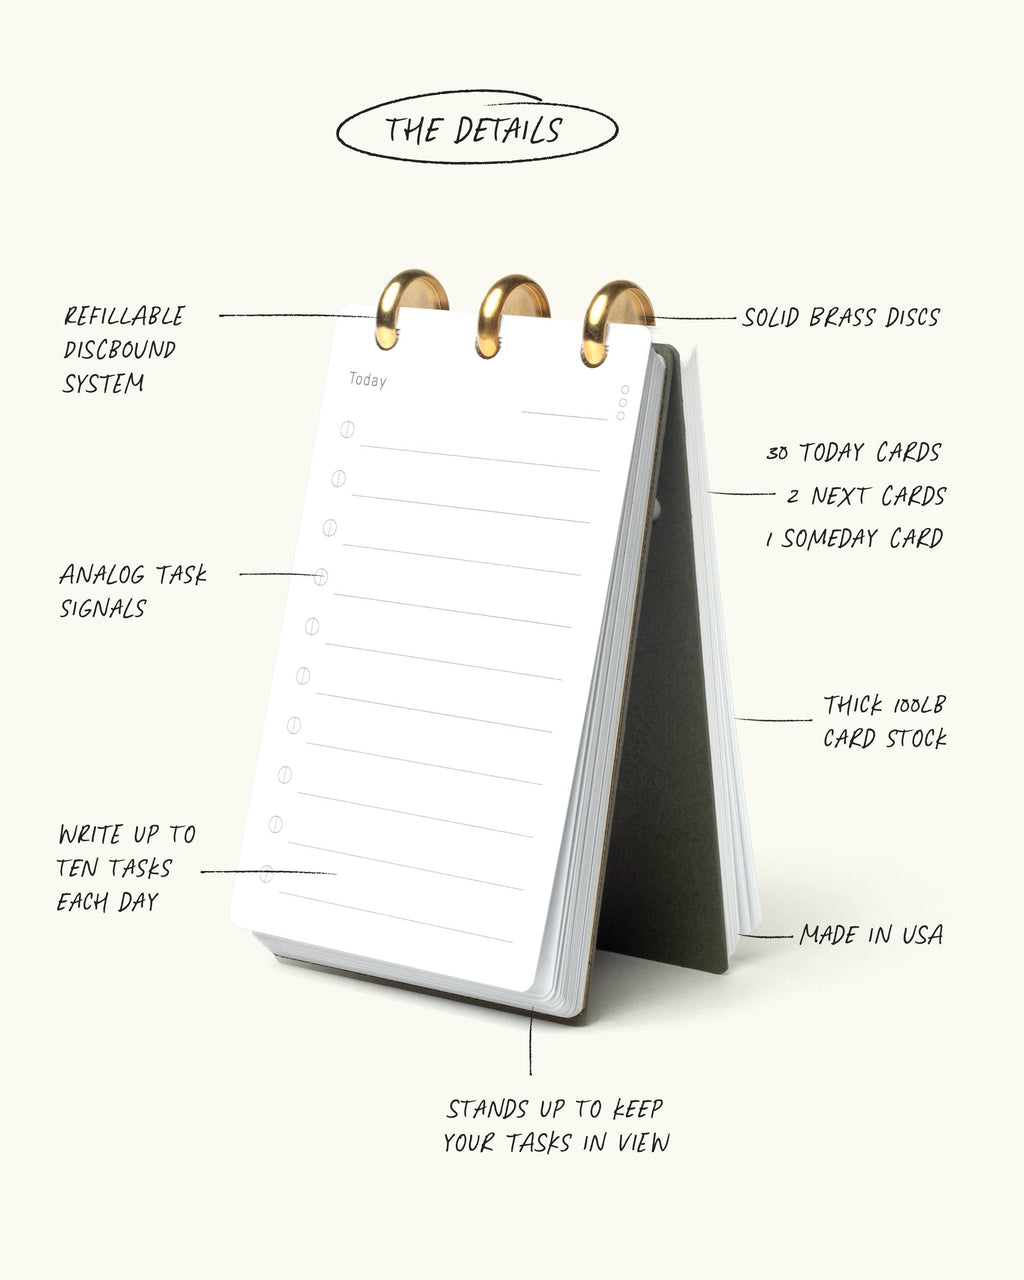 THE DETAILS
REFILLABLE
DISCBOUND
SYSTEM
SOLID BRASS DISCS
Today
30 TODAY CARDS
2 NEXT CARDS
1 SOMEDAY CARD
ANALOG TASK
SIGNALS
THICK 100LB
CARD STOCK
WRITE UP TO
TEN TASKS
EACH DAY
MADE IN USA
STANDS UP TO KEEP
YOUR TASKS IN VIEW